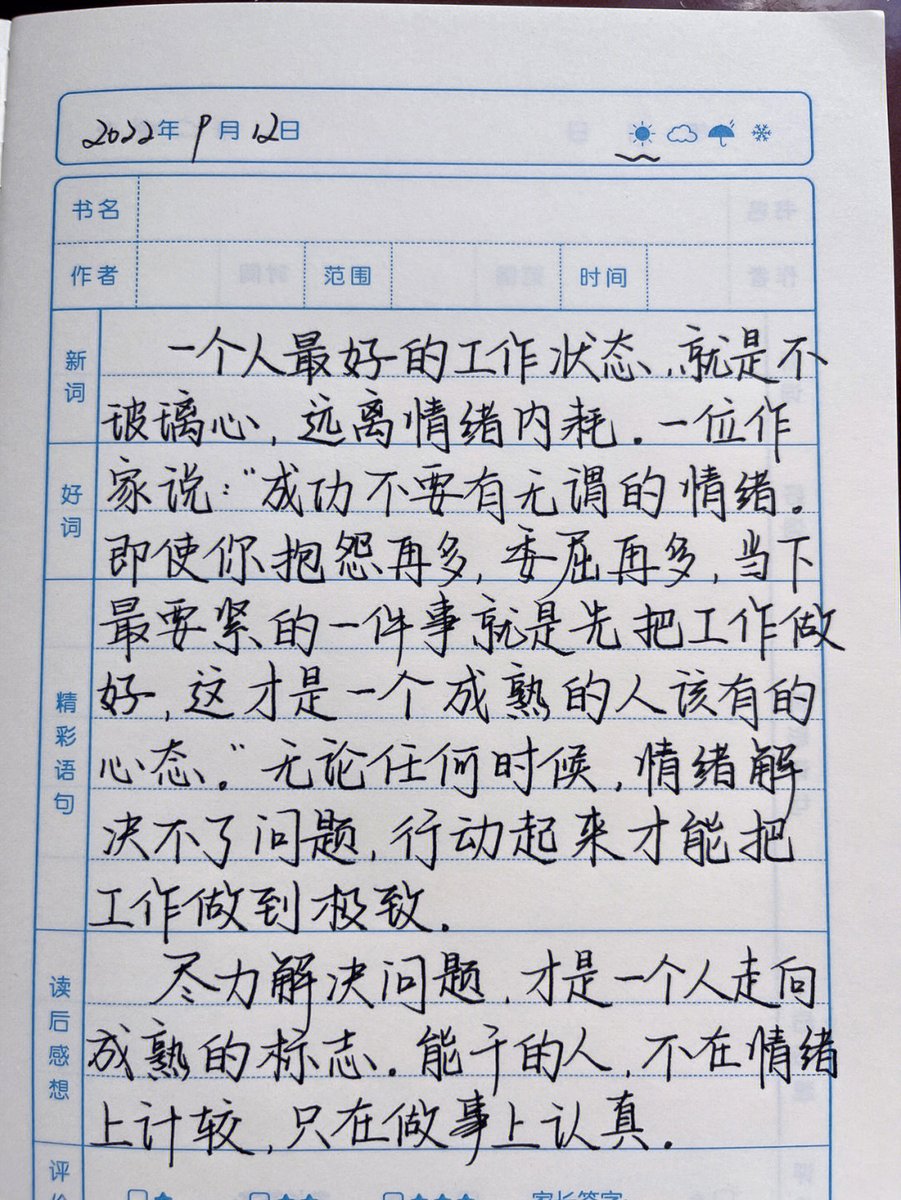 2022年9月12日
书名
作者 范围 时间
新词
好词
精彩语句
读后感想
一个人最好的工作状态,就是不
玻璃心,远离情绪内耗.一位作
家说:“成功不要有无谓的情绪。
即使你抱怨再多,委屈再多,当下
最要紧的一件事就是先把工作做
好,这才是一个成熟的人该有的
心态.”无论任何时候,情绪解
决不了问题,行动起来才能把
工作做到极致.
尽力解决问题,才是一个人走向
成熟的标志.能干的人,不在情绪
上计较,只在做事上认真.
评
家长签字